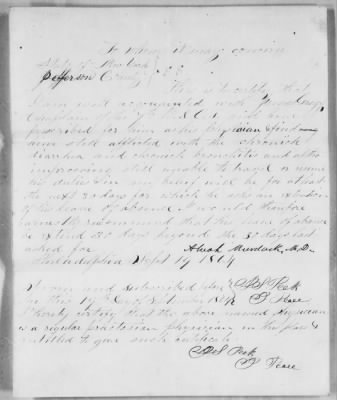 To whom it may concern
State of New York
Jefferson County } SS
This is to certify that
I am well acquainted with
Chaplain of the N.Y. and have
prescribed for him as his physician & find
him still afflicted with the chronick
diarrhea and cronick bronchitis and altho
improving still unable to travel or resume
his duties in my belief will be for at least
the next 20 days for which he asks an extension
of his leave of absence. I would therefore
earnestly recommend that his leave of absence
be extend 20 days beyond the 30 days last
asked for
Abiah Murdock, M.D.
Philadelphia Sept 19 1864
Sworn and subscribed before
me this 19th day of September 1864
I hereby certify that the above named physician
is a regular practician physician in this place &
entitled to give such certificate